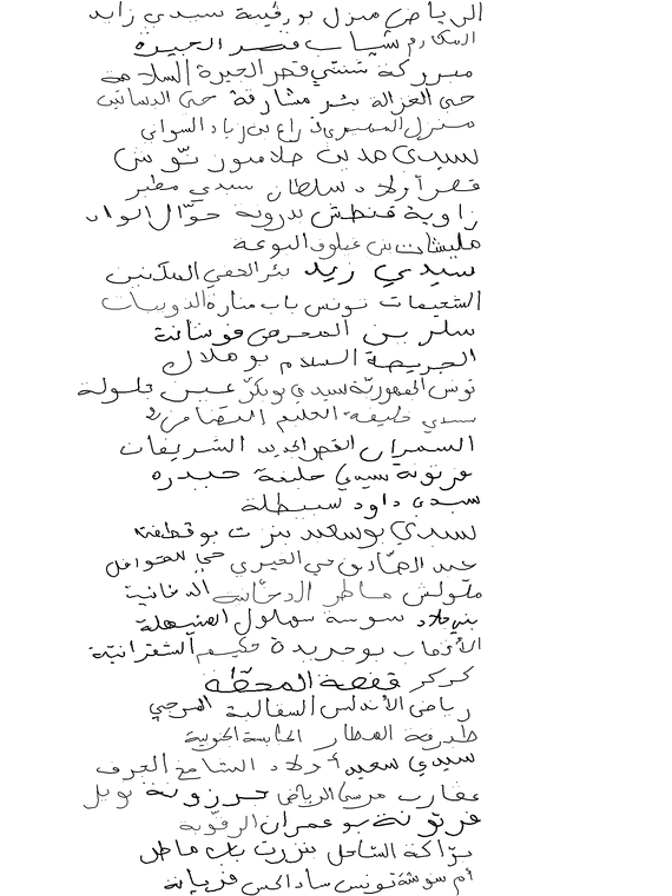 الرياض منزل بورقيبة سيدي زايد
المكارم شباب قصر الجيرة
مبروكة شنني قصر الجيرة السلامة
حي الغزالة بئر مشارقة حي البساتين
منزل المهيري ذراع بن زياد السواني
سيدي مدين حلاموز تونس
قصر أولاد سلطان سيدي مطير
زاوية قنطش بدرونة حوال الواد
مليشات بني غيلوف البوعة
سيدي زيد بئر الحفي المكنين
الشعيمات تونس باب منارة الذويبات
سلر بن المحرص فوشانة
الجريصة السلام بوهلال
تونس الجمهورية سيدي بوبكر عين جلولة
سيدي خليفة الحليم التضامن
السمران القصر الجديد الشريفات
فرتونة سيدي خليفة حيدرة
سيدي داود سبيطلة
سيدي بوسعيد بنزرت بوقطفة
عبد الصادق حي الخيري حي القوافل
ملولش ماطر الدخانية
بني خلاد سوسة سهلول المنيهلة
الأنصاب بوجريدة حكيم الشقرانية
كركر قفصة المحطة
رياض الأندلس السقالبة المرجي
طبرقة العطار الحابسة الجنوبية
سيدي سعيد أولاد الشامخ الجرف
عقارب مرسى الرياض جرزونة نوبل
فرتونة بوعمران الرقوبة
براكة الساحل بنزرت باب ماطر
أم سوشة تونس ساداكس فريانة